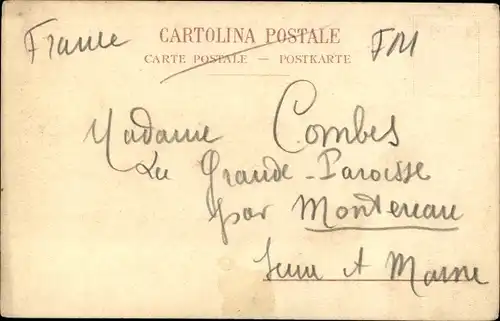 France
CARTOLINA POSTALE
FM
CARTE POSTALE — POSTKARTE
Madame Combes
La Grande-Paroisse
par Montereau
Seine et Marne